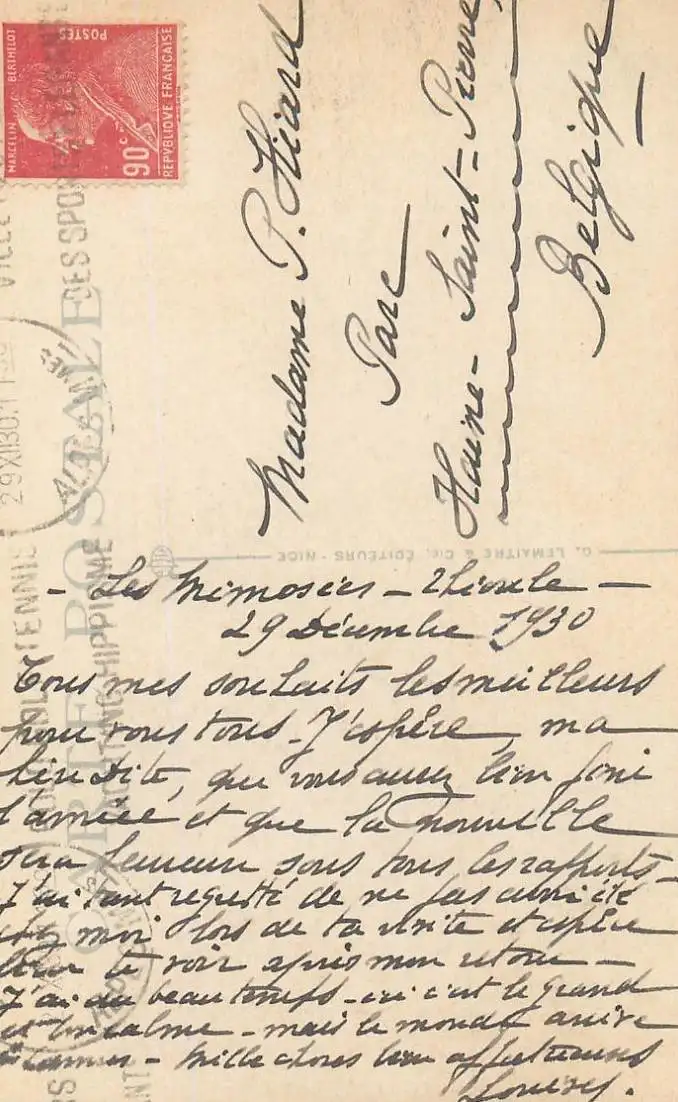 MARCELIN BERTHELOT
POSTES
90 c
REPVBLIQVE FRANÇAISE
Madame P. Huard
Parc
Haine-Saint-Pierre
Belgique
CARTE POSTALE
G. LEMAITRE & Cie, ÉDITEURS - NICE
29 XII 30
TENNIS
HIPPIQUE
DES SPORTS
- Les Mimosées -
29 Décembre 1930
Tous mes souhaits les meilleurs
pour vous tous - J'espère, ma
que vous aurez bien fini
l'année et que la nouvelle
sera heureuse sous tous les rapports -
J'ai tant regretté de ne pas avoir été
chez moi lors de ta visite et espère
bien te voir après mon retour -
J'ai du beau temps - ici c'est le grand
et bon calme - mais le monde arrive
à Cannes - Mille choses bien affectueuses